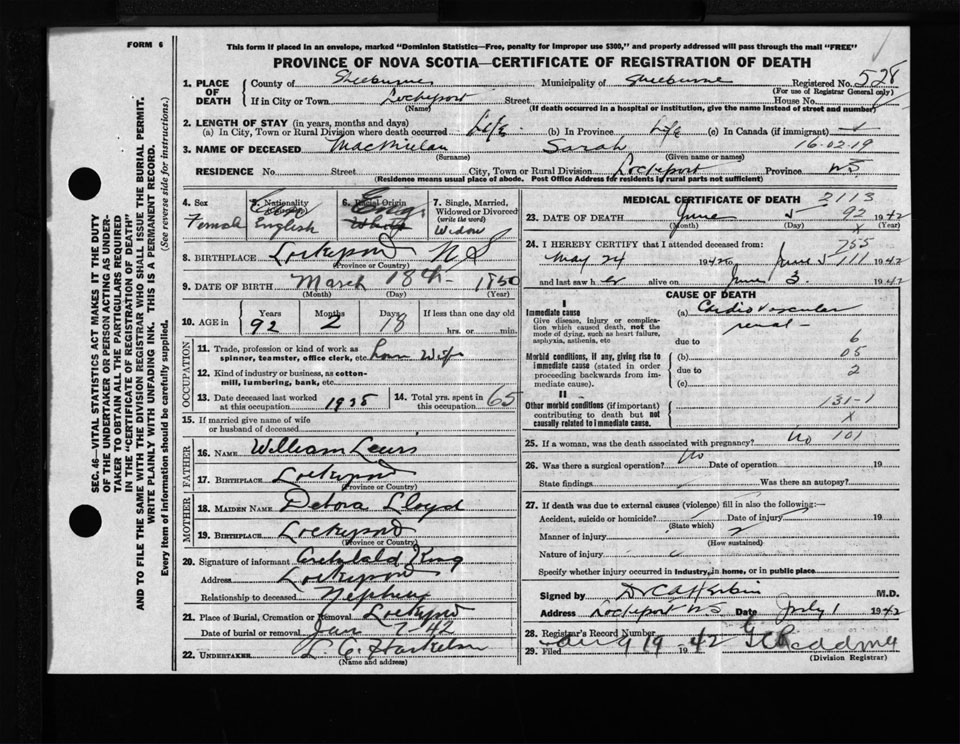 FORM 6
This form if placed in an envelope, marked "Dominion Statistics—Free, penalty for improper use $300," and properly addressed will pass through the mail "FREE"
PROVINCE OF NOVA SCOTIA—CERTIFICATE OF REGISTRATION OF DEATH
1. PLACE OF DEATH
County of Shelburne Municipality of Shelburne Registered No. 528
(For use of Registrar General only)
If in City or Town Lockeport Street House No.
(Name) (If death occurred in a hospital or institution, give the name instead of street and number)
2. LENGTH OF STAY (in years, months and days)
(a) In City, Town or Rural Division where death occurred Life (b) In Province Life (c) In Canada (if immigrant)
16-02-19
3. NAME OF DECEASED MacMillan Sarah
(Surname) (Given name or names)
RESIDENCE No. Street City, Town or Rural Division Lockeport Province NS
(Residence means usual place of abode. Post Office Address for residents in rural parts not sufficient)
4. Sex 5. Nationality 6. Racial Origin 7. Single, Married, Widowed or Divorced (write the word)
Female English White Widow
8. BIRTHPLACE Lockeport NS
(Province or Country)
9. DATE OF BIRTH March 18th 1850
(Month) (Day) (Year)
10. AGE in Years Months Days If less than one day old
92 2 18 hrs. or min.
OCCUPATION
11. Trade, profession or kind of work as spinner, teamster, office clerk, etc. House Wife
12. Kind of industry or business, as cotton-mill, lumbering, bank, etc.
13. Date deceased last worked at this occupation 1935 14. Total yrs. spent in this occupation 65
15. If married give name of wife or husband of deceased
FATHER
16. NAME William Lewis
17. BIRTHPLACE Lockeport
(Province or Country)
MOTHER
18. MAIDEN NAME Debora Lloyd
19. BIRTHPLACE Lockeport
(Province or Country)
20. Signature of informant Archibald King
Address Lockeport
Relationship to deceased Nephew
21. Place of Burial, Cremation or Removal Lockeport
Date of burial or removal June 7 42
22. UNDERTAKER L. C.
(Name and address)
MEDICAL CERTIFICATE OF DEATH 2113
23. DATE OF DEATH June 5 92 1942
(Month) (Day) X
24. I HEREBY CERTIFY that I attended deceased from: 755
May 24 1942 to June 5 111 1942
and last saw her alive on June 3. 1942
CAUSE OF DEATH
I
Immediate cause
Give disease, injury or complication which caused death, not the mode of dying, such as heart failure, asphyxia, asthenia, etc
(a) Cardio vascular
renal
due to 6
Morbid conditions, if any, giving rise to immediate cause (stated in order proceeding backwards from immediate cause).
(b) 05
due to 2
(c)
II
Other morbid conditions (if important) contributing to death but not causally related to immediate cause.
131-1
X
25. If a woman, was the death associated with pregnancy? No 101
26. Was there a surgical operation? No Date of operation 19
State findings Was there an autopsy?
27. If death was due to external causes (violence) fill in also the following:—
Accident, suicide or homicide? Date of injury 19
(State which)
Manner of injury
(How sustained)
Nature of injury
Specify whether injury occurred in industry, in home, or in public place
Signed by Dr C A Herbin M.D.
Address Lockeport N.S Date July 1 1942
28. Registrar's Record Number
29. Filed 1942
(Division Registrar)
SEC. 46—VITAL STATISTICS ACT MAKES IT THE DUTY
OF THE UNDERTAKER OR PERSON ACTING AS UNDER-
TAKER TO OBTAIN ALL THE PARTICULARS REQUIRED
IN THE "CERTIFICATE OF REGISTRATION OF DEATH"
AND TO FILE THE SAME WITH THE DIVISION REGISTRAR WHO SHALL ISSUE THE BURIAL PERMIT.
WRITE PLAINLY WITH UNFADING INK. THIS IS A PERMANENT RECORD.
Every item of information should be carefully supplied. (See reverse side for instructions.)